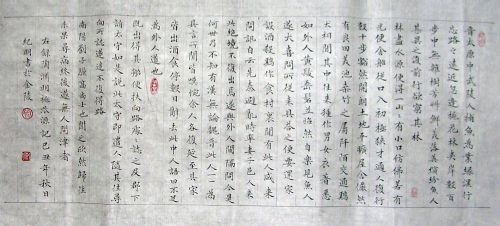 晉太原中武陵人捕魚為業緣溪行
忘路之遠近忽逢桃花林夾岸數百
步中無雜樹芳艸鮮美落英繽紛魚人
甚異之復前行欲窮其林
林盡水源便得一山山有小口仿佛若有
光便舍船從口入初極狹才通人復行
數十步豁然開朗土地平曠屋舍儼然
有良田美池桑竹之屬阡陌交通雞
犬相聞其中往來種作男女衣著悉
如外人黄髮垂髫並怡然自樂見魚人
遂大驚問所從來具答之便要還家
設酒殺雞作食村裏聞有此人咸來
問訊自云先世避亂時率妻子邑人來
此絕境不復出焉遂與外人間隔問今是
何世乃不知有漢無論魏晉此人一一為
具言所聞皆嘆惋餘人各復延至其家
皆出酒食停數日辭去此中人語曰不足
為外人道也
既出得其船便扶向路處處誌之及郡下
詣太守如是說太守即遣人隨其往尋
向所誌遂迷不復得路
南陽劉子驥高尚士也聞之欣然歸往
未果尋病終後遂無人問津者
右錄陶淵明桃花源記己丑年秋日
紀明書於金陵